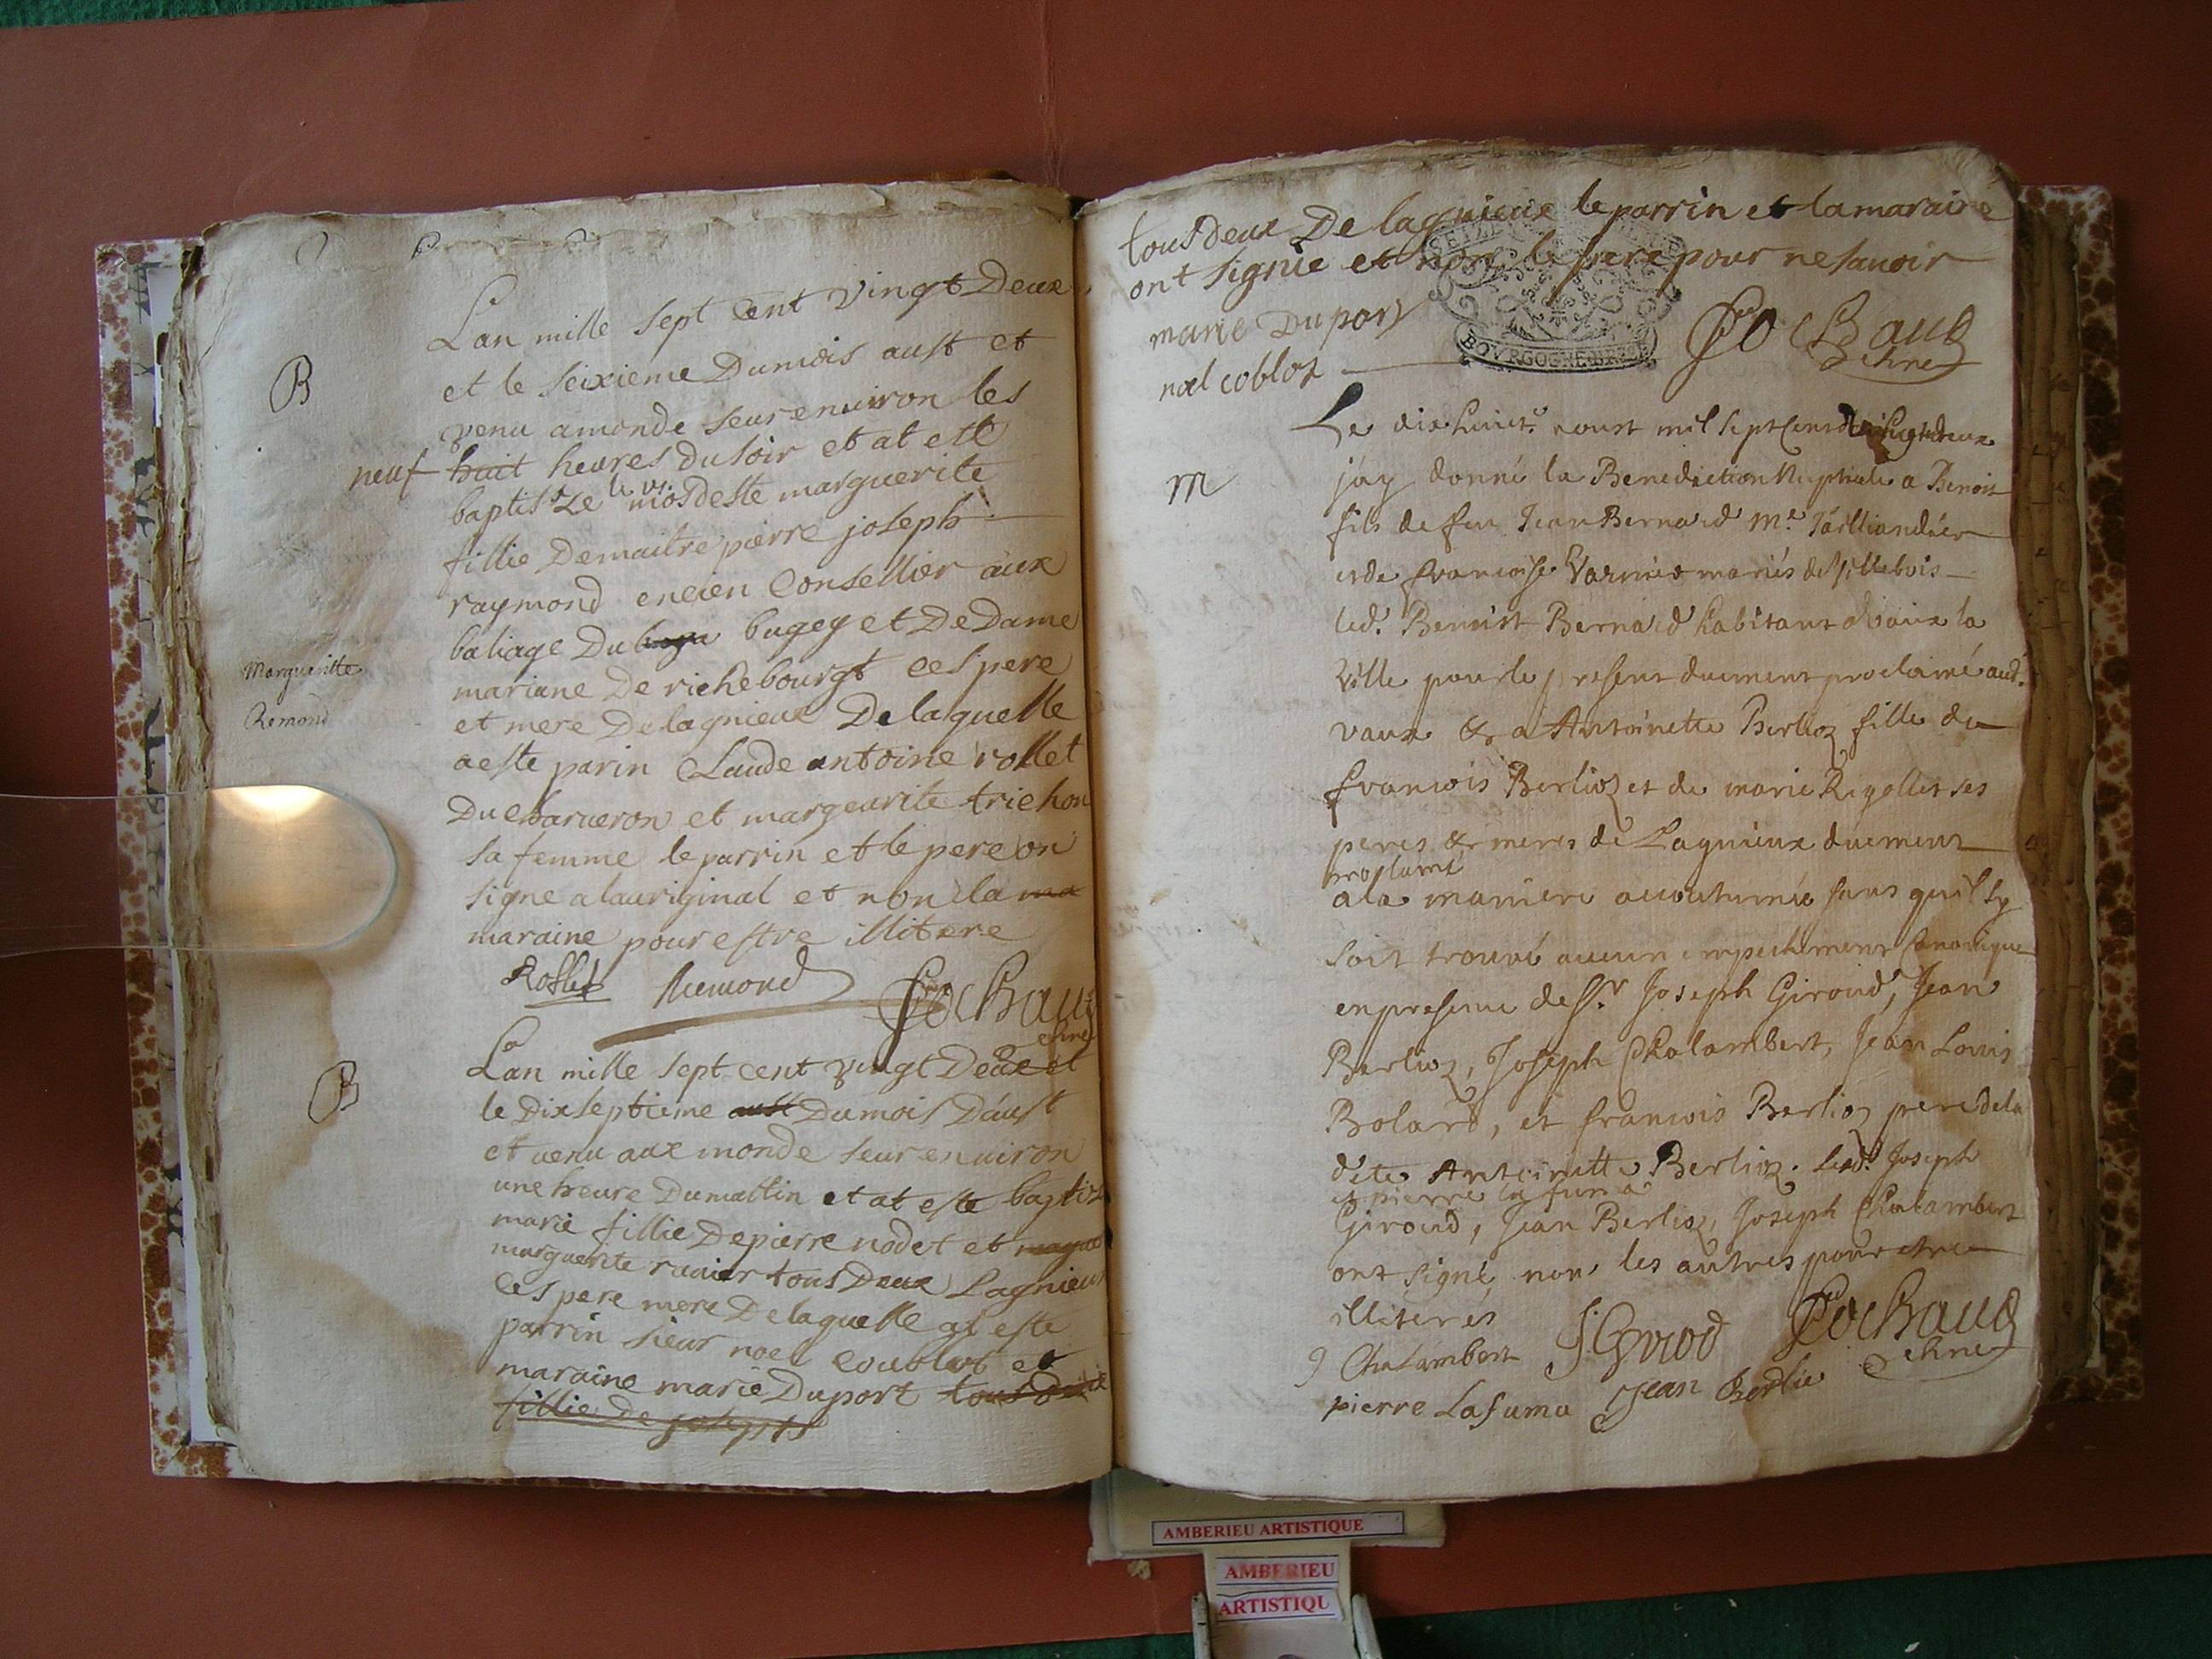 Lan mille sept cent vingt Deux
et le seixieme Dumois aust et
B
venu amonde seur enuiron les
neuf huit heures du soir et at este
baptissé modeste marguerite
fillie De maitre pierre joseph
raymond encien Consellier aux
baliage Du bugey et De Dame
Margueritte
mariane De richebourgt ces pere
Remond
et mere De lagnieux De laquelle
a este parin Claude antoine rollet
Du charueron et margeurite trichon
sa femme le parrin et le pere on
signe a lauriginal et non la ma
maraine pour estre illitere
Rollet Remond Cochaud
chne
B
Lan mille sept cent vingt Deux et
le Dixseptieme aust Dumois Daust
et uenu aux monde seur enuiron
une heure Dumattin et at este baptiz
marie fillie De pierre nodet et
marguerite rauier tous Deux Lagnieux
ces pere mere De laquelle at este
parrin sieur noel coublot et
maraine marie Duport tous deux
fillie de joseph
tous deux De lagnieux le parrin et la maraine
ont signie et non le pere pour ne sauoir
marie Duport Cochaud
chne
noel coblot
BOVRGOGNE
Le dix huict aoust mil sept cens vingt deux
m
j'ay donné la Benediction Nuptiale a Benoit
fils de feu Jean Bernard Me Tailliandier
et de francoise Varnier mariés de Villebois
led. Benoist Bernard habitant a vaux la
Ville pour le present duement proclamé aud.
vaux & a Antoinette Berlioz fille de
francois Berlioz et de marie Rigollet ses
peres & meres de Lagnieux duement
proclamé
a la maniere accoutumée sans quil sy
soit trouvé aucun empechement Canonique
en presence de sr. Joseph Giroud, Jean
Berlioz, Joseph Chalambert, Jean Louis
Bolard, et francois Berlioz pere de la
dite Antoinette Berlioz. Led. Joseph
et pierre lafuma
Giroud, Jean Berlioz, Joseph Chalambert
ont signé, non les autres pour etre
illiterés
J Chalambert J. Giroud Cochaud
chne
pierre Lafuma Jean Berlie
AMBERIEU ARTISTIQUE
AMBERIEU
ARTISTIQU